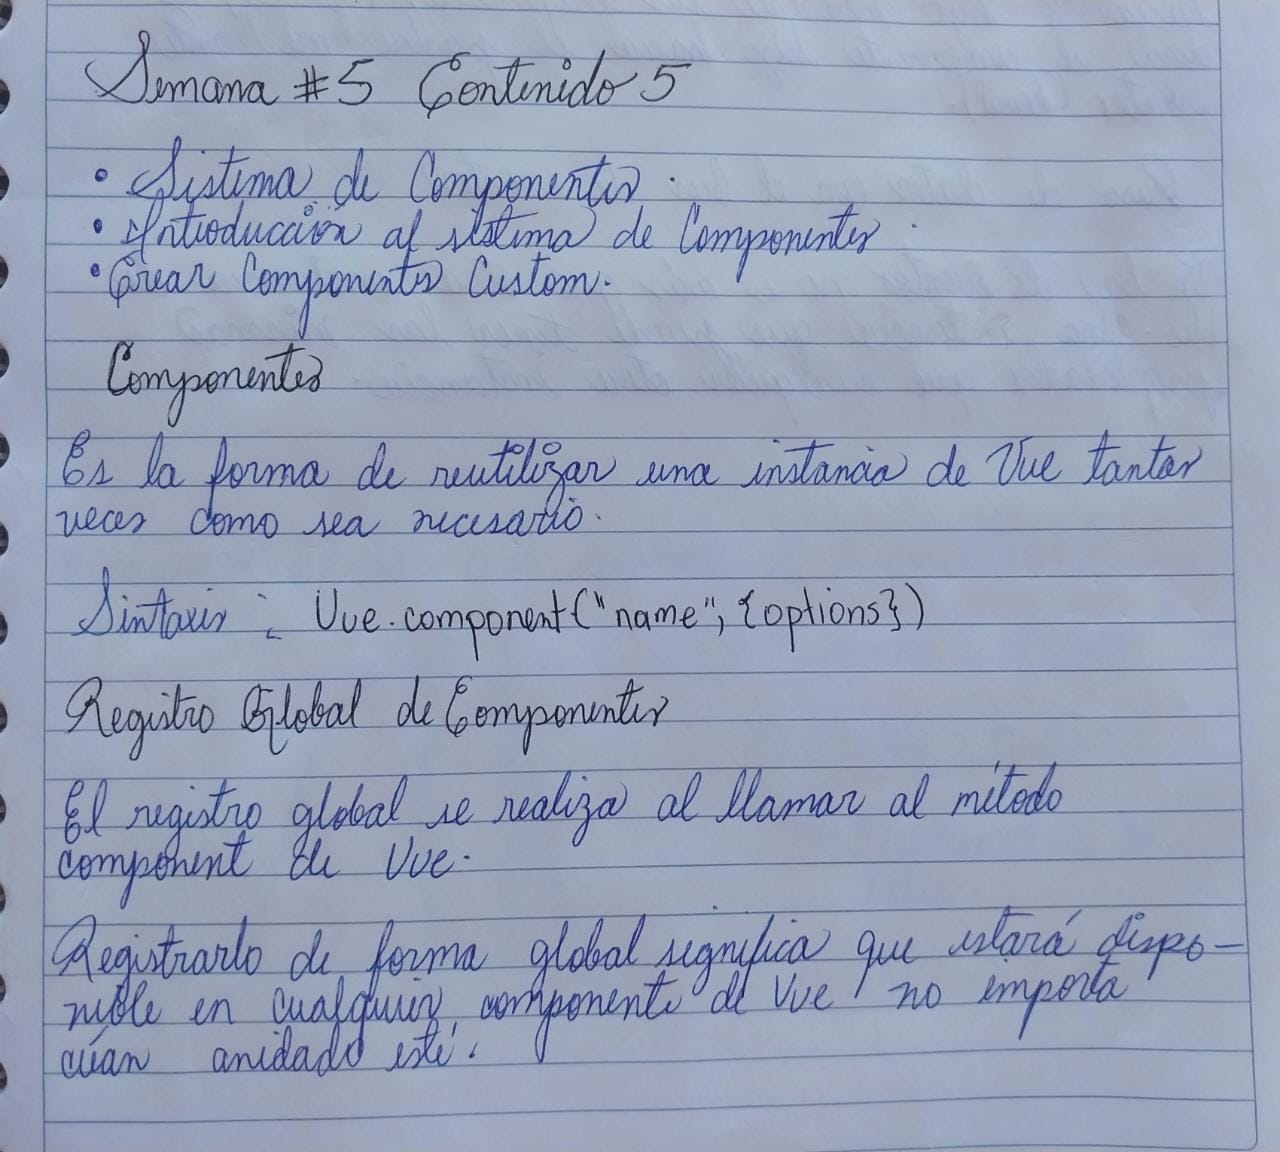 Semana #5 Contenido 5
• Sistema de Componentes.
• Introducción al sistema de Componentes.
• Crear Components Custom.
Componentes
Es la forma de reutilizar una instancia de Vue tantas
veces como sea necesario.
Sintaxis: Vue.component("name", {options})
Registro Global de Componentes
El registro global se realiza al llamar al método
component de Vue.
Registrarlo de forma global significa que estará dispo-
nible en cualquier componente de Vue no importa
cúan anidado esté.